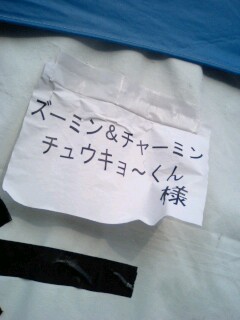 ズーミン&チャーミン
チュウキョ～くん
様